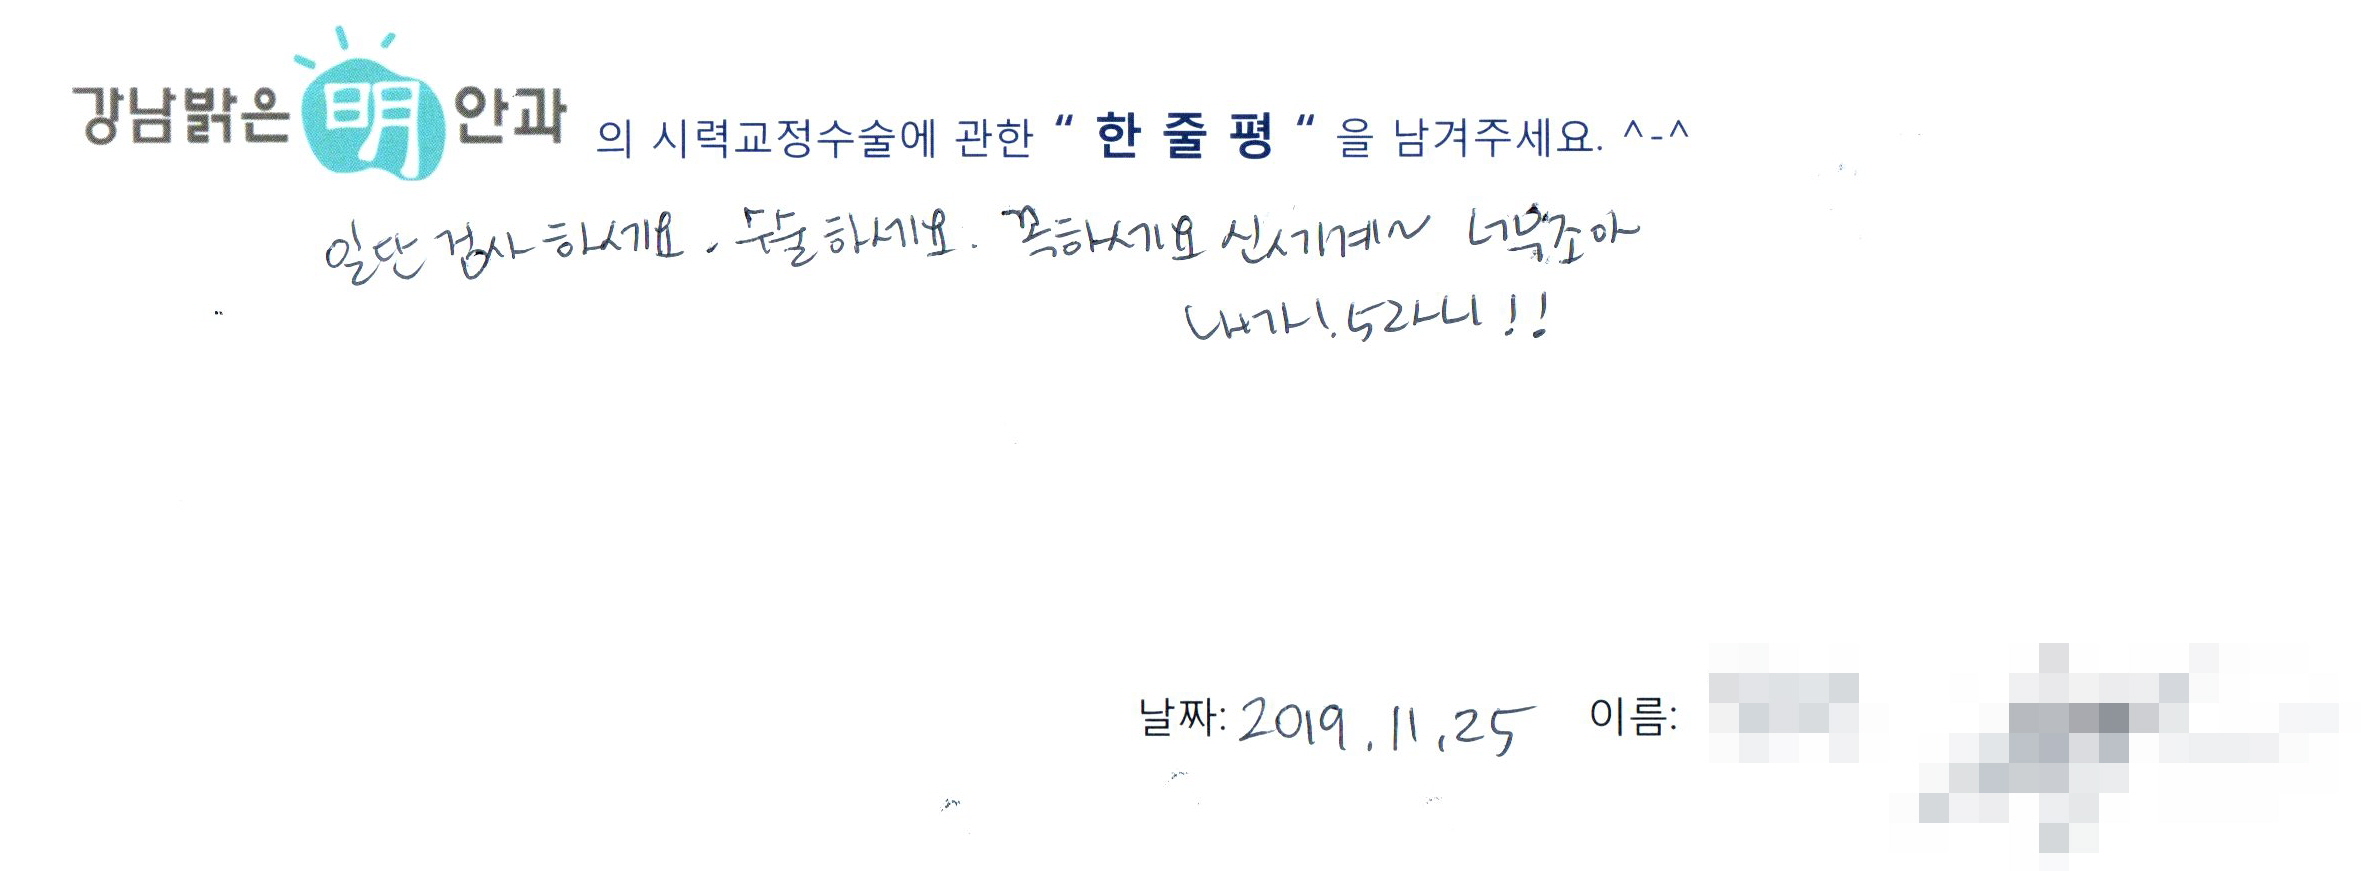 강남밝은明안과 의 시력교정수술에 관한 “ 한 줄 평 “ 을 남겨주세요. ^-^
일단 검사 하세요. 수술 하세요. 꼭하세요 신세계~ 너무조아
내가 1.5라니!!
날짜: 2019.11.25 이름: